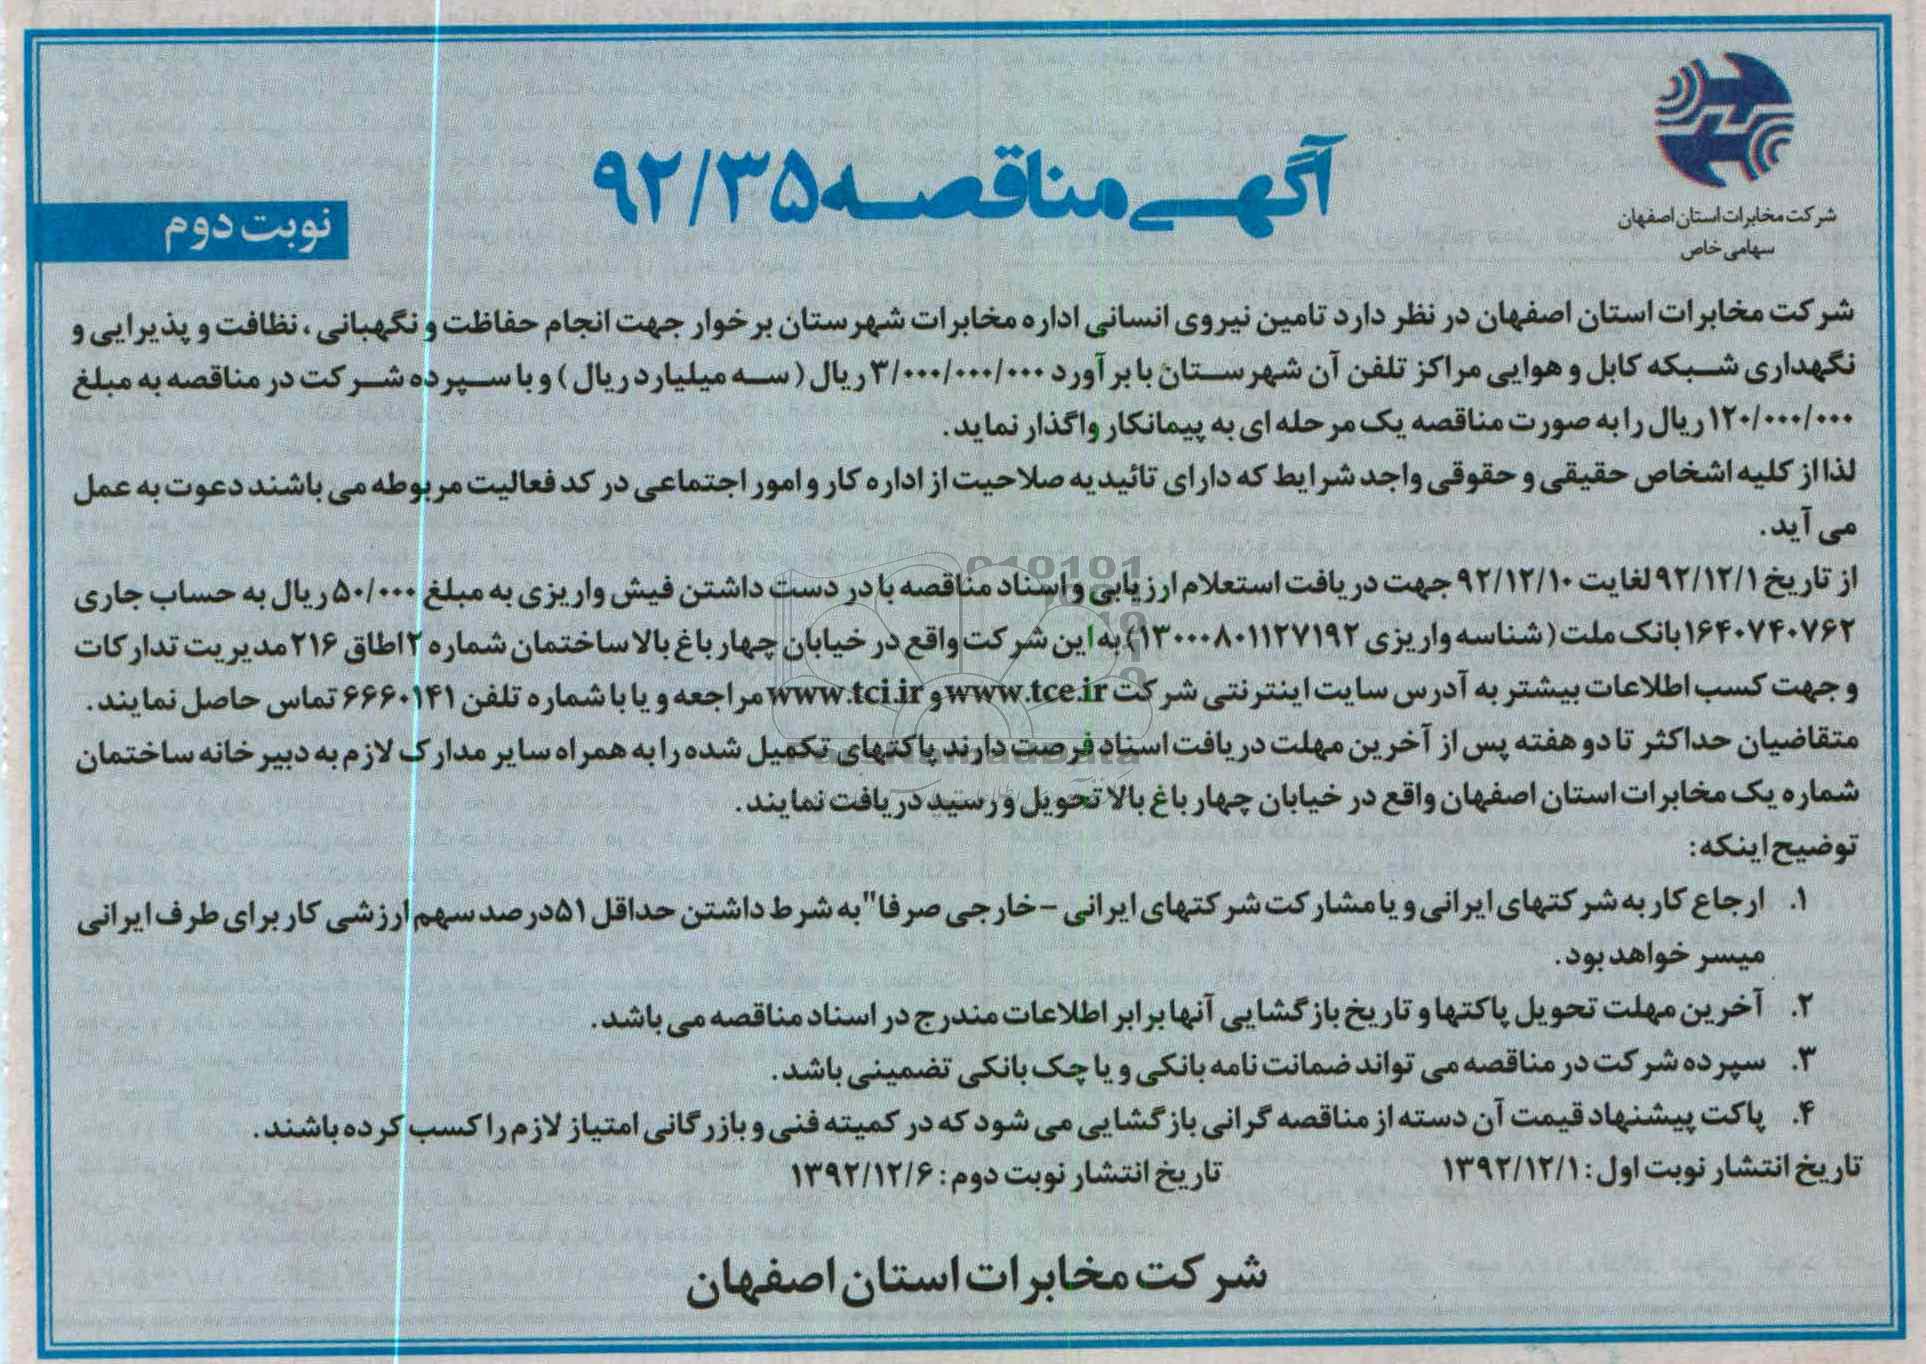 شرکت مخابرات استان اصفهان
سهامی خاص
آگهی مناقصه ۹۲/۳۵
نوبت دوم
شرکت مخابرات استان اصفهان در نظر دارد تامین نیروی انسانی اداره مخابرات شهرستان برخوار جهت انجام حفاظت و نگهبانی ، نظافت و پذیرایی و
نگهداری شبکه کابل و هوایی مراکز تلفن آن شهرستان با برآورد ۳/۰۰۰/۰۰۰/۰۰۰ ریال ( سه میلیارد ریال ) و با سپرده شرکت در مناقصه به مبلغ
۱۲۰/۰۰۰/۰۰۰ ریال را به صورت مناقصه یک مرحله ای به پیمانکار واگذار نماید.
لذا از کلیه اشخاص حقیقی و حقوقی واجد شرایط که دارای تائیدیه صلاحیت از اداره کار و امور اجتماعی در کد فعالیت مربوطه می باشند دعوت به عمل
می آید.
از تاریخ ۹۲/۱۲/۱ لغایت ۹۲/۱۲/۱۰ جهت دریافت استعلام ارزیابی و اسناد مناقصه با در دست داشتن فیش واریزی به مبلغ ۵۰/۰۰۰ ریال به حساب جاری
۱۶۴۰۷۴۰۷۶۲ بانک ملت ( شناسه واریزی ۱۳۰۰۰۸۰۱۱۲۷۱۹۲) به این شرکت واقع در خیابان چهارباغ بالا ساختمان شماره ۲ اطاق ۲۱۶ مدیریت تدارکات
و جهت کسب اطلاعات بیشتر به آدرس سایت اینترنتی شرکت www.tce.ir و www.tci.ir مراجعه و یا با شماره تلفن ۶۶۶۰۱۴۱ تماس حاصل نمایند.
متقاضیان حداکثر تا دو هفته پس از آخرین مهلت دریافت اسناد فرصت دارند پاکتهای تکمیل شده را به همراه سایر مدارک لازم به دبیرخانه ساختمان
شماره یک مخابرات استان اصفهان واقع در خیابان چهارباغ بالا تحویل و رسید دریافت نمایند.
توضیح اینکه:
۱. ارجاع کار به شرکتهای ایرانی و یا مشارکت شرکتهای ایرانی - خارجی صرفا" به شرط داشتن حداقل ۵۱ درصد سهم ارزشی کار برای طرف ایرانی
میسر خواهد بود.
۲. آخرین مهلت تحویل پاکتها و تاریخ بازگشایی آنها برابر اطلاعات مندرج در اسناد مناقصه می باشد.
۳. سپرده شرکت در مناقصه می تواند ضمانت نامه بانکی و یا چک بانکی تضمینی باشد.
۴. پاکت پیشنهاد قیمت آن دسته از مناقصه گرانی بازگشایی می شود که در کمیته فنی و بازرگانی امتیاز لازم را کسب کرده باشند.
تاریخ انتشار نوبت اول: ۱۳۹۲/۱۲/۱ تاریخ انتشار نوبت دوم: ۱۳۹۲/۱۲/۶
شرکت مخابرات استان اصفهان